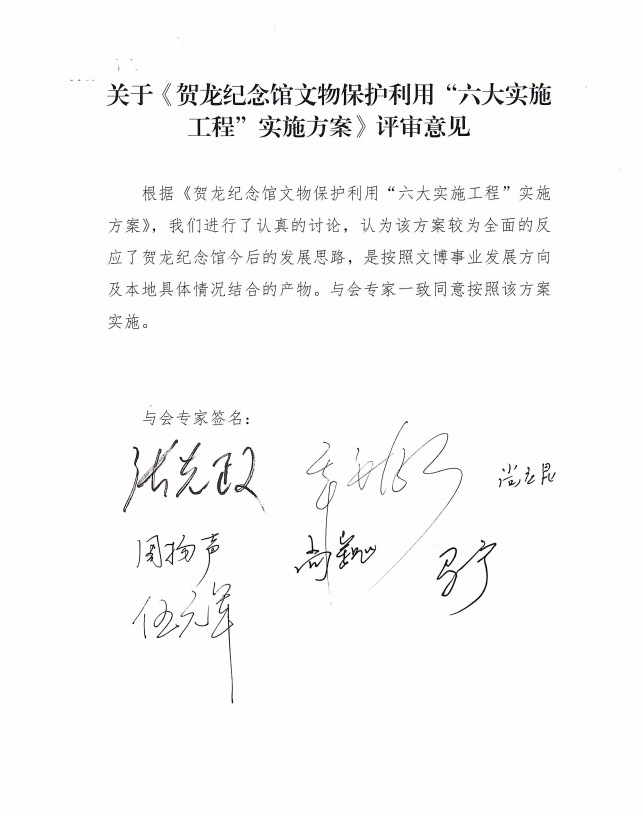 关于《贺龙纪念馆文物保护利用“六大实施
工程”实施方案》评审意见
根据《贺龙纪念馆文物保护利用“六大实施工程”实施
方案》，我们进行了认真的讨论，认为该方案较为全面的反
应了贺龙纪念馆今后的发展思路，是按照文博事业发展方向
及本地具体情况结合的产物。与会专家一致同意按照该方案
实施。
与会专家签名：
张光政
尚立昆
周扬声
尚巍
马宁
伍元军